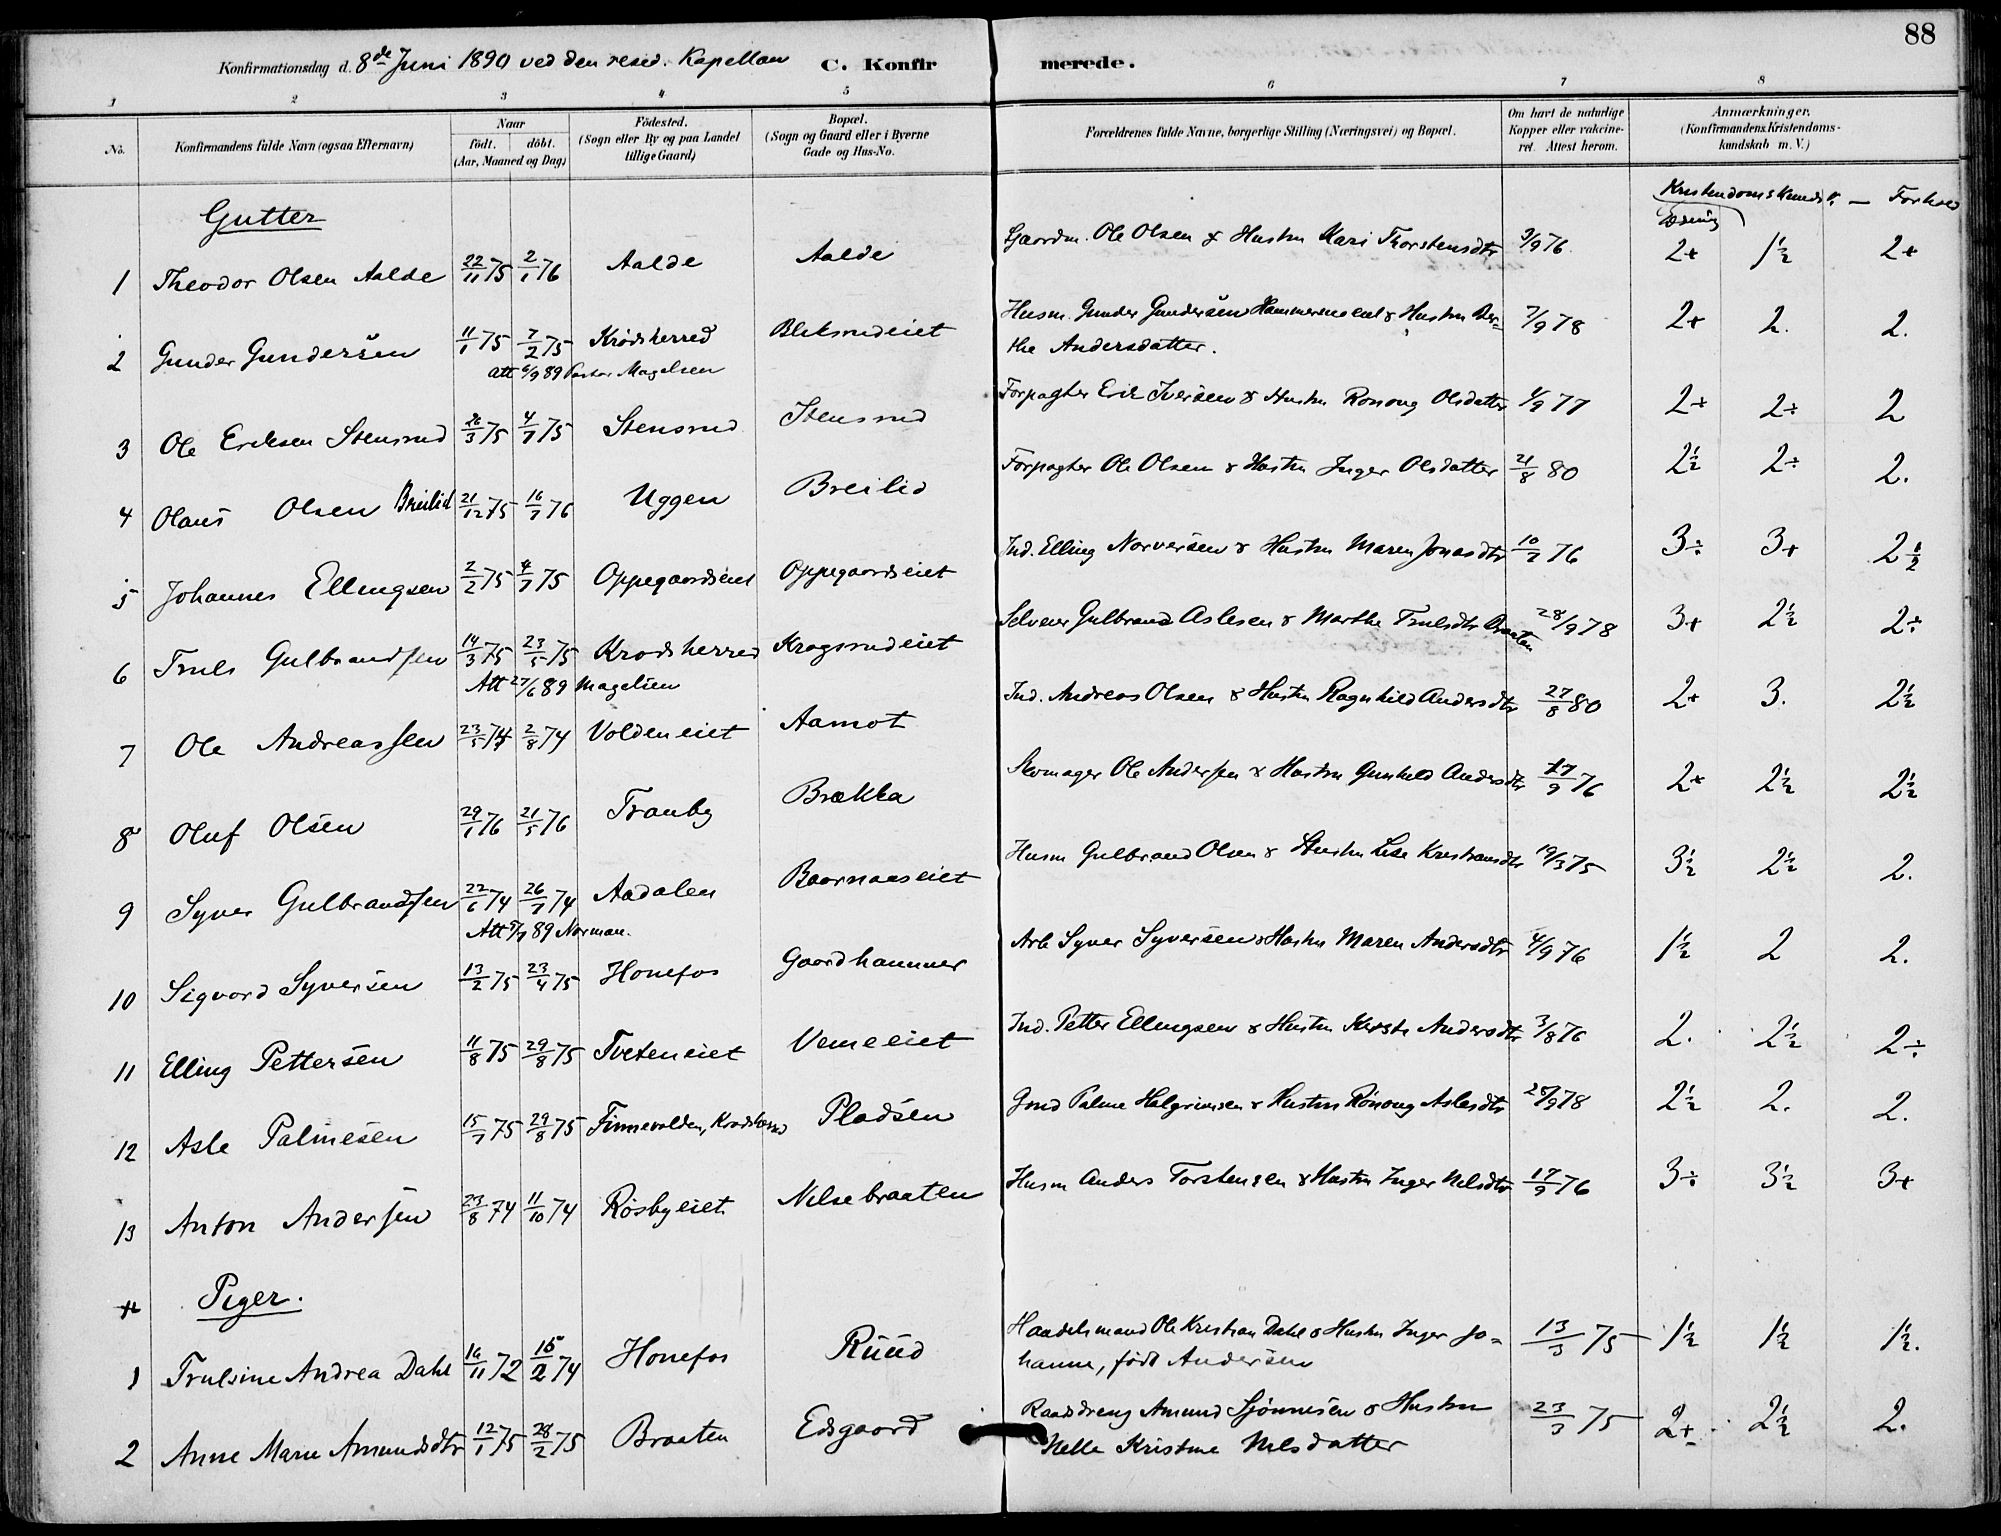 88
Konfirmationsdag d. 8de Juni 1890 ved den resid. Kapellan C. Konfirmerede.
1 2 3 4 5 6 7 8
No. Konfirmandens fulde Navn (ogsaa Efternavn) Naar født. døbt. (Aar, Maaned og Dag) Födested. (Sogn eller By og paa Landet tillige Gaard) Bopæl. (Sogn og Gaard eller i Byerne Gade og Hus-No. Forældrenes fulde Navne, borgerlige Stilling (Næringsvei) og Bopæl. Om havt de naturlige Kopper eller vakcineret. Attest herom. Anmærkninger. (Konfirmandens Kristendomskundskab m. V.)
Gutter
Læsning Kristendomskundsk. — Forhold
1 Theodor Olsen Aalde 22/11 75 2/1 76 Aalde Aalde Gaardm. Ole Olsen & Hustru Kari Thorstensdtr 9/9 76 2+ 1½ 2+
2 Gunder Gundersen 11/1 75 7/2 75 Krödsherred Bliksrudeiet Husm. Gunder Gundersen & Hustru Ber= 7/9 78 2+ 2. 2.
Att 6/9 89 Pastor Magelsen the Andersdatter.
3 Ole Eriksen Stensrud 26/3 75 4/7 75 Stensrud Stensrud Forpagter Erik Iversen & Hustru Ronoug Olsdatter 4/9 77 2+ 2÷ 2
4 Olaus Olsen Breilid 21/12 75 16/7 76 Uggen Breilid Forpagter Ole Olsen & Hustru Inger Olsdatter 21/8 80 2½ 2÷ 2.
5 Johannes Ellingsen 2/2 75 4/7 75 Oppegaardseiet Oppegaardseiet Ind. Elling Narvesen & Hustru Maren Jonasdtr 10/7 76 3÷ 3+ 2½
6 Truls Gulbrandsen 14/3 75 23/5 75 Krodsherred Kragsrudeiet Selveier Gulbrand Aslesen & Marthe Trulsdtr Braaten 28/9 78 3+ 2½ 2÷
Att 27/6 89 Magelsen
7 Ole Andreassen 23/5 74 2/8 74 Voldeneiet Aamot Ind. Andreas Olsen & Hustru Ragnhild Andersdtr 27/8 80 2+ 3. 2½
8 Oluf Olsen 29/1 76 21/5 76 Tranby Brækka Skomager Ole Andersen & Hustru Gunhild Andersdtr 17/9 76 2+ 2½ 2½
9 Syver Gulbrandsen 22/6 74 26/7 74 Aadalen Baarnaaseiet Husm Gulbrand Olsen & Hustru Lise Kristiansdtr 19/3 75 3½ 2½ 2.
Att 5/7 89 Norman.
10 Sigvard Syversen 13/2 75 23/4 75 Honefos Gaardhammer Arb Syver Syversen & Hustru Maren Andersdtr 4/9 76 1½ 2 2.
11 Elling Pettersen 11/8 75 29/8 75 Tveteneiet Vemeeiet Ind. Petter Ellingsen & Hustru Kirsti Andersdtr 3/8 76 2. 2½ 2÷
12 Asle Palmesen 15/7 75 29/8 75 Finnevolden, Krodsherred Pladsen Gmd Palme Halgrimsen & Hustru Rönoug Aslesdtr 28/9 78 2½ 2. 2.
13 Anton Andersen 23/8 74 11/10 74 Rösbyeiet. Nilsebraaten Husm Anders Torstensen & Hustru Inger Nilsdtr 17/9 76 3÷ 3½ 3+
Piger.
1 Trulsine Andrea Dahl 16/11 72 15/2 74 Honefos Ruud Handelsmand Ole Kristian Dahl & Hustru Inger Jo= 13/3 75 1½ 1½ 1½.
hanne, født Andersen
2 Anne Marie Amundsdtr 12/1 75 28/2 75 Braaten Edsgaard Raadsdreng Amund Sjönnesen & Hustru 23/3 75 2+ 2½ 2.
Helle Kristine Nilsdatter